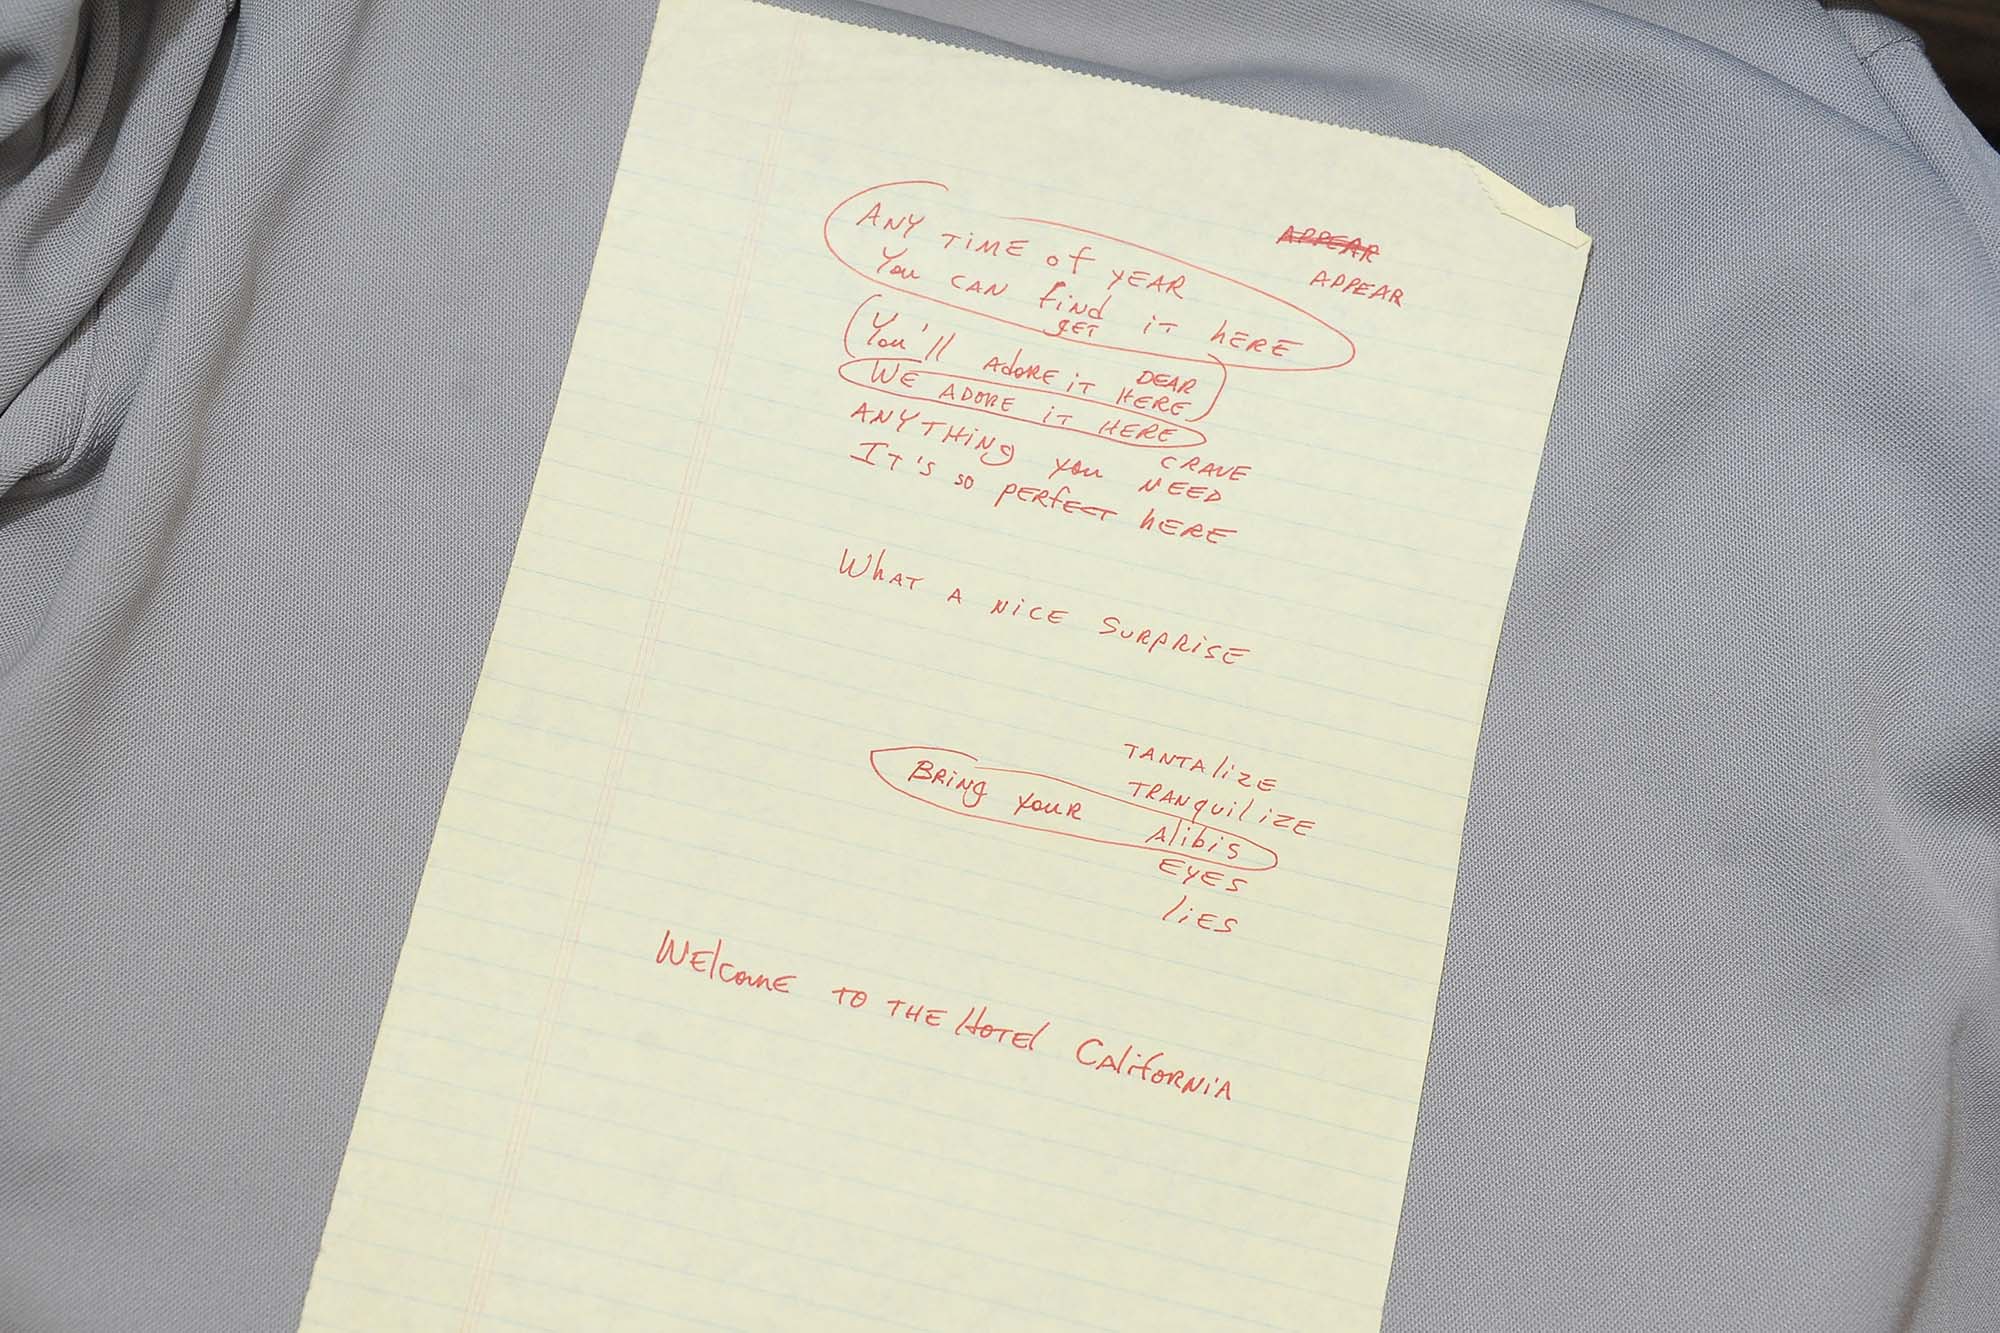 APPEAR
ANY TIME of YEAR
APPEAR
You CAN find iT hERE
gET
You'll AdORE iT DEAR
HERE
WE ADORE iT HERE
ANYTHiNg you CRAVE
NEED
IT'S so PERfECT hERE
WhAT A NiCE SURPRiSE
TANTAlizE
TRANquilizE
BRiNg youR Alibis
EYES
liES
WElcomE TO THE HOTEl CAlifORNiA